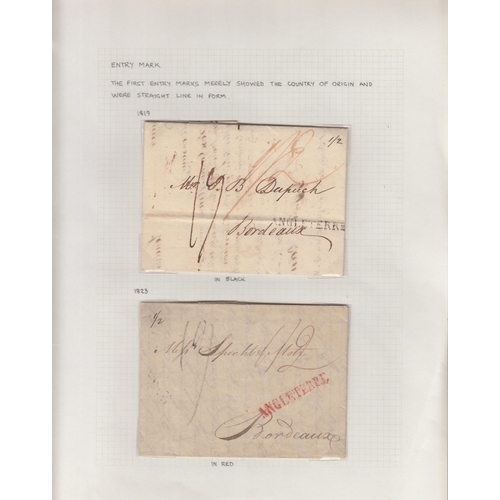 ENTRY MARK.
THE FIRST ENTRY MARKS MERELY SHOWED THE COUNTRY OF ORIGIN AND
WERE STRAIGHT LINE IN FORM.
1819
1/2
1/2
Mr S. B.
ANGLETERRE
Bordeaux
IN BLACK
1823
1/2
ANGLETERRE
Bordeaux
IN RED